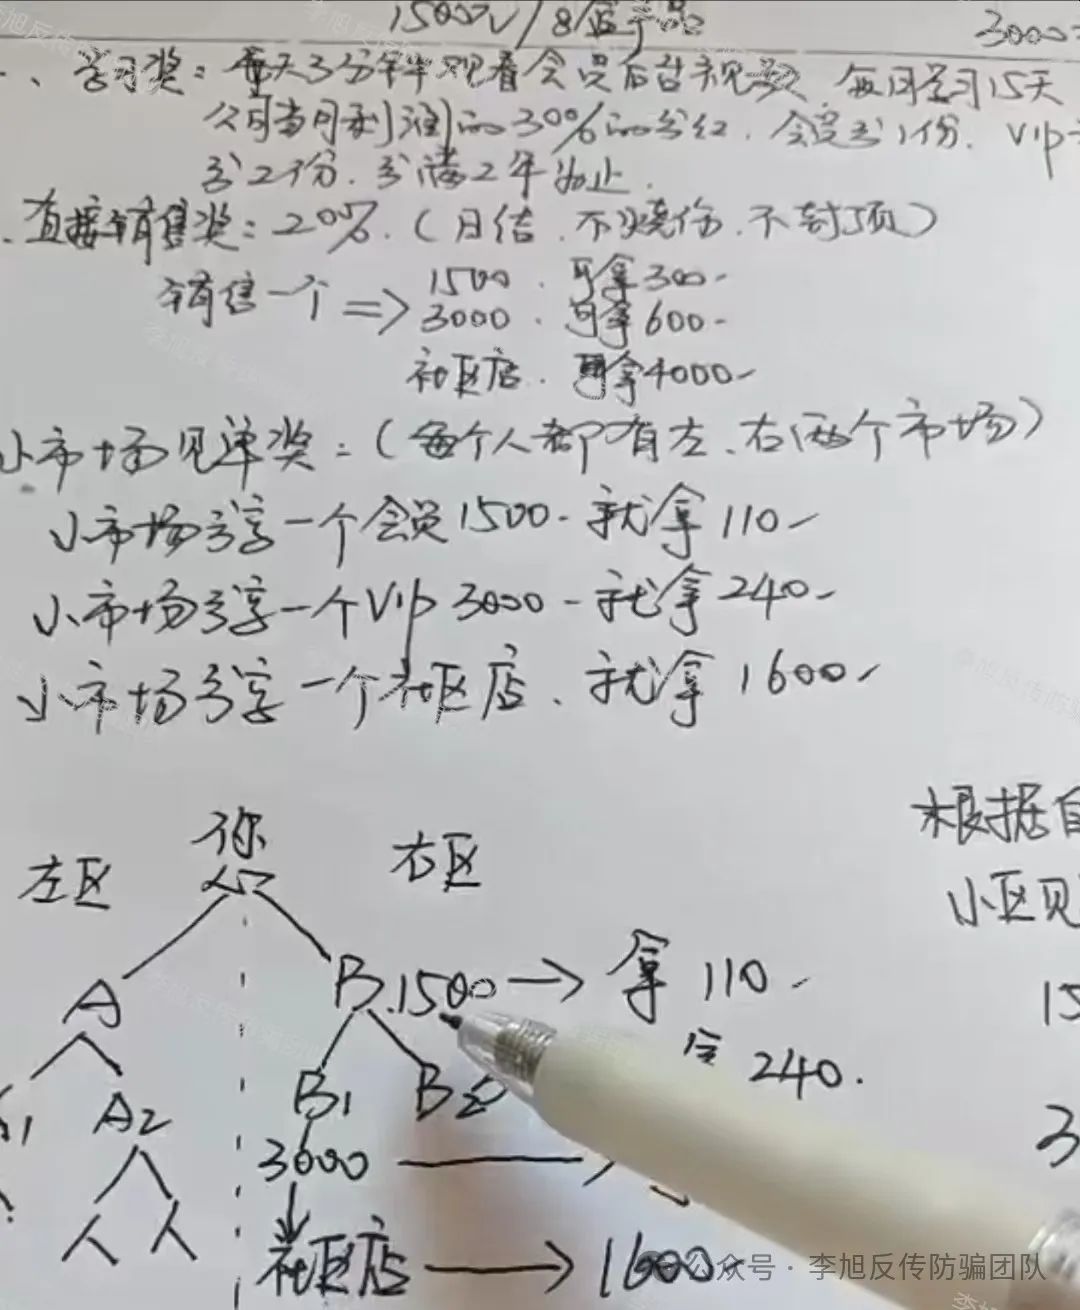 1500 / 8盒产品
3000
一、学习奖：每天3分钟观看会员后台视频、每月学习15天
公司当月利润的30%的分红、会员分1份、Vip
分2份、分满2年为止.
直接销售奖：20%.（月结、不烧伤、不封顶）
销售一个 => 1500 . 可拿300-
3000 . 可拿600-
社区店 . 可拿4000-
小市场见单奖：（每个人都有左、右两个市场）
小市场分享一个会员1500-就拿110-
小市场分享一个Vip 3000-就拿240-
小市场分享一个社区店、就拿1600-
根据
你
左区 右区
小区见
A B.1500 → 拿110-
15
240.
A2 B1 B2
3000 →
3
人 人
社区店 → 1600-
公众号·李旭反传防骗团队